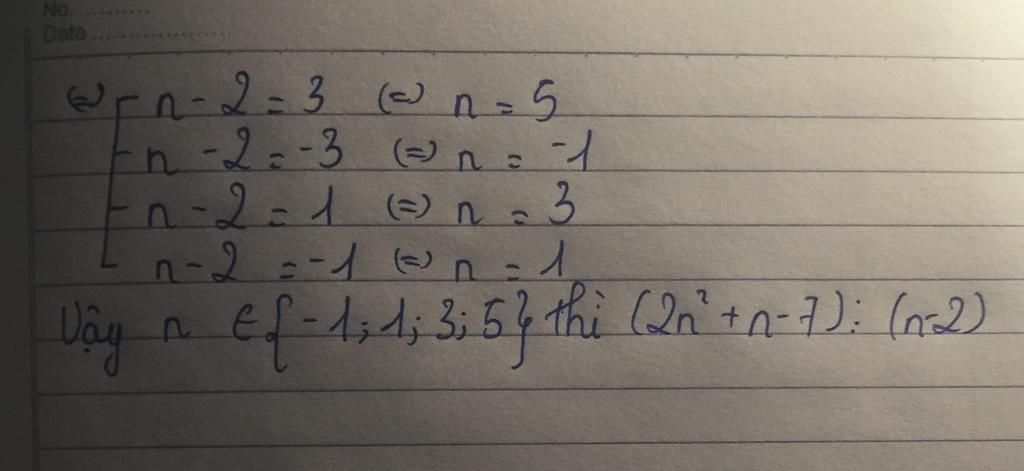 No. ..........
Date .....................
(=) n - 2 = 3 (=) n = 5
n - 2 = -3 (=) n = -1
n - 2 = 1 (=) n = 3
n - 2 = -1 (=) n = 1
Vậy n ∈ {-1; 1; 3; 5} thì (2n² + n - 7) ⋮ (n-2)